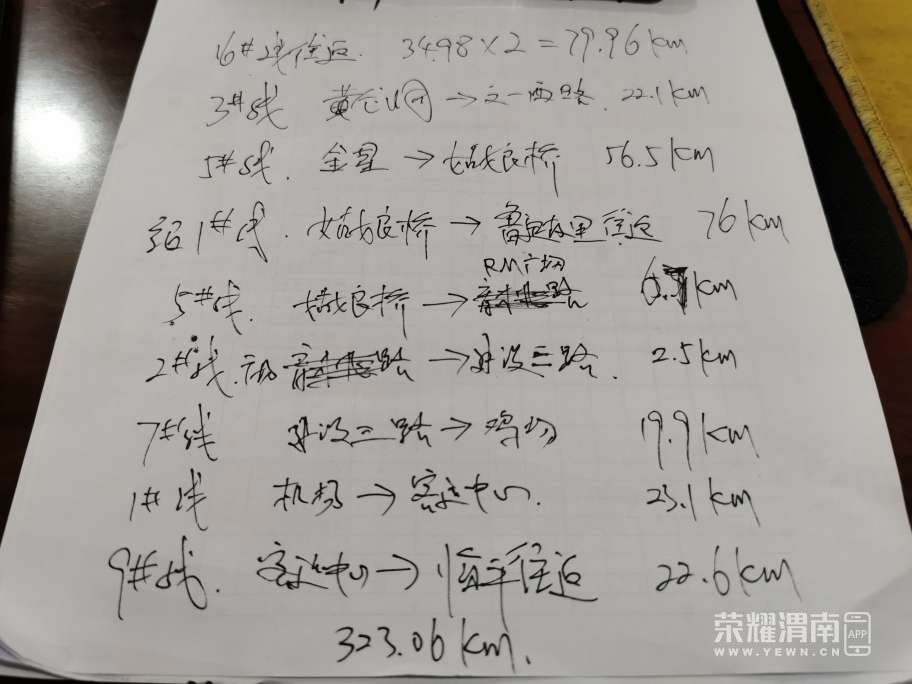 16#线往返 34.98×2=79.96km
3#线 黄龙洞→文一西路 22.1km
5#线. 金星→姑娘桥 56.5km
绍1#线. 姑娘桥→往返 76km
5#线. 姑娘桥→RM广场 6.7km
2#线. →建设三路. 2.5km
7#线 建设三路→机场 19.9km
1#线 机场→客运中心. 23.1km
9#线. 客运中心→临平往返 22.6km
323.06km.
荣耀渭南 APP
WWW.YEWN.CN